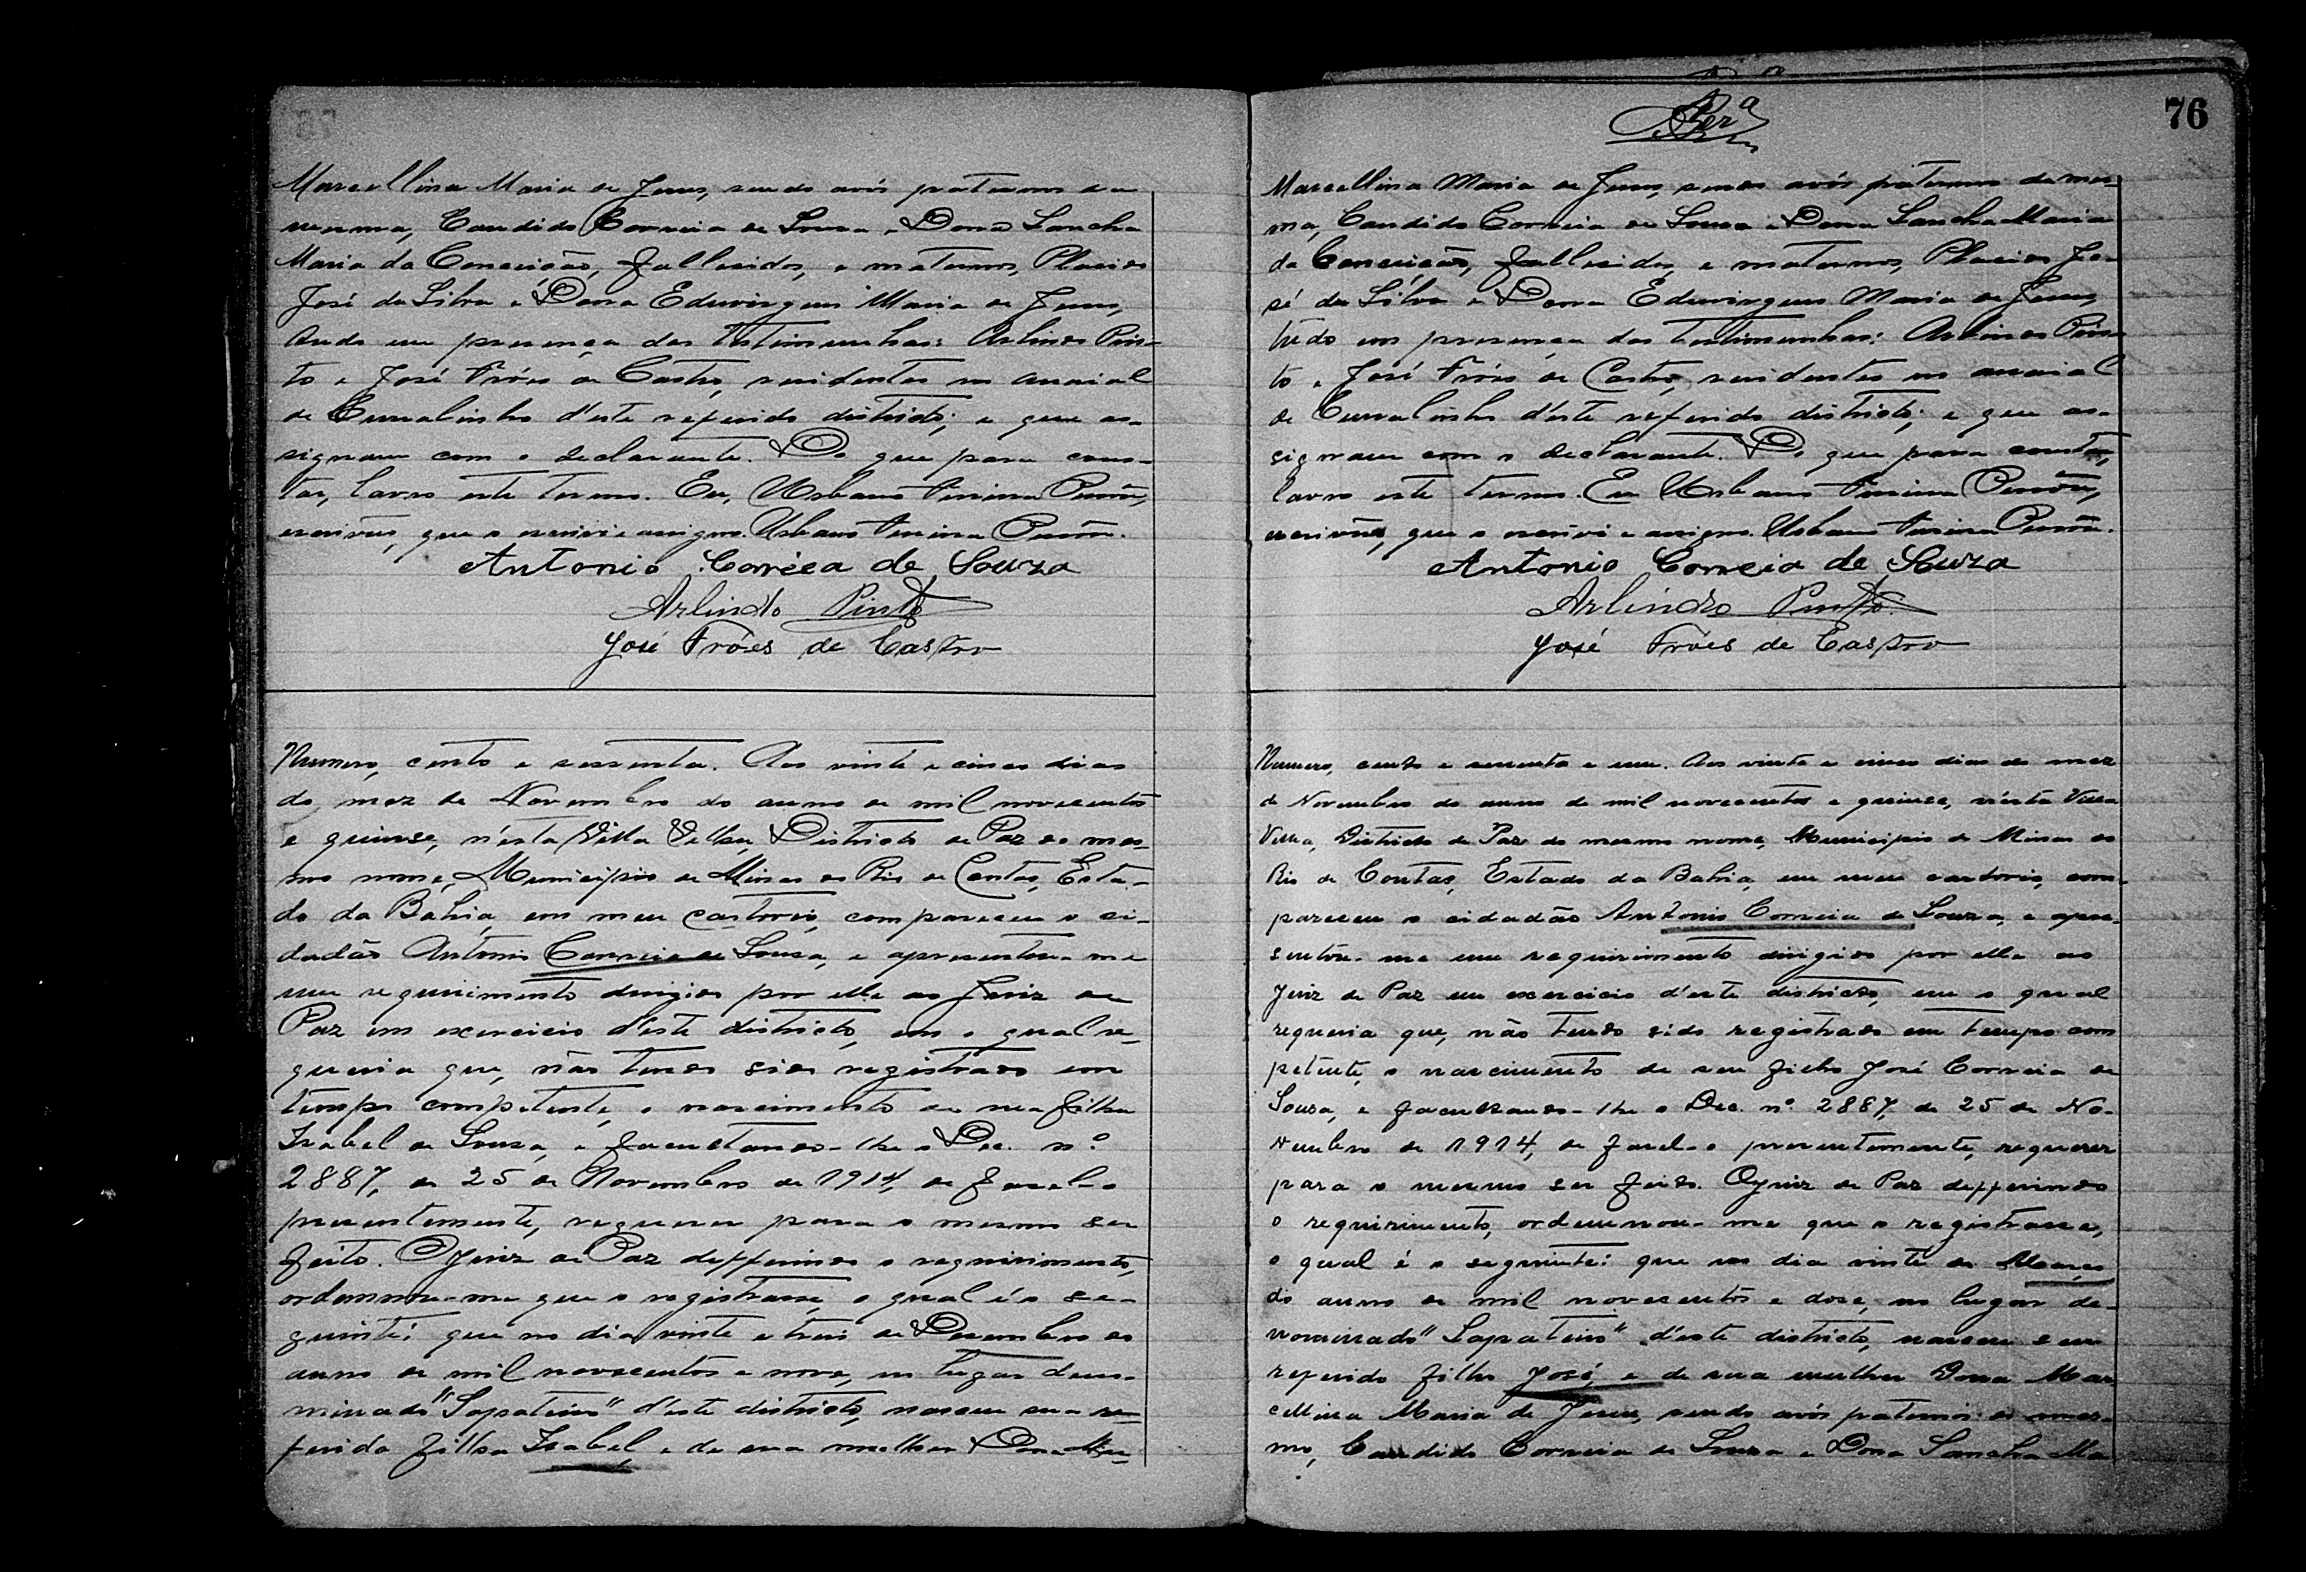 Marcellina Maria de Jesus, sendo avós paternos da
mesma, Candido Correia de Sousa e Dona Sancha
Maria da Conceicão, fallecidos, e maternos, Placido
José da Silva e Dona Eduvirgens Maria de Jesus,
tudo em presença das testimunhas: Arlindo Pin-
to e José Fróes de Castro, residentes no arraial
de Curralinho d'este referido districto; e que as-
signam com o declarante. Do que para cons-
tar, lavro este termo. Eu, Urbano Pereira
escrivão, que o escrivi e assigno. Urbano Pereira
Antonio Correa de Souza
Arlindo Pinto
José Fróes de Castro
Numero, cento e sessenta. Aos vinte e cinco dias
do mez de Novembro do anno de mil novecentos
e quinse, n'esta Villa Velha, Districto de Paz do mes-
mo nome, Municipio de Minas do Rio de Contas, Esta-
do da Bahia, em meu cartorio, compareceu o ci-
dadão Antonio Correia de Sousa, e apresentou-me
um requirimento dirigido por elle ao Juiz de
Paz em exercicio d'este districto, em o qual re-
queria que, não tendo sido registrado em
tempo competente, o nascimento de sua filha
Izabel de Sousa, e facultando-lhe o Dec. nº
2887, de 25 de Novembro de 1914, de fazel-o
presentemente, requerer para o mesmo ser
feito. O Juiz de Paz defferindo o requirimento,
ordennou-me que o registrasse, o qual é o se-
guinte: que no dia vinte e treis de Desembro do
anno de mil novecentos e nove, no lugar deno-
minado "Sapateiro" d'este districto, nasceu sua re-
ferida filha Izabel, e de sua mulher Dona Mar-
76
Marcellina Maria de Jesus, sendo avós paternos da mes-
ma, Candido Correia de Sousa e Dona Sancha Maria
da Conceicão, fallecidos, e maternos, Placido Jo-
sé da Silva e Dona Eduvirgens Maria de Jesus,
tudo em presença das testimunhas: Arlindo Pin-
to e José Fróes de Castro, residentes no arraial
de Curralinho d'este referido districto; e que as-
signam com o declarante. Do que para constar,
lavro este termo. Eu Urbano Pereira
escrivão, que o escrivi e assigno. Urbano Pereira
Antonio Correia de Souza
Arlindo Pinto
José Fróes de Castro
Numero, cento e sessenta e um. Aos vinte e cinco dias do mez
de Novembro do anno de mil novecentos e quinse, n'esta Villa
Velha, Districto de Paz do mesmo nome, Municipio de Minas do
Rio de Contas, Estado da Bahia, em meu cartorio, com-
pareceu o cidadão Antonio Correia de Souza, e apre-
sentou-me um requirimento dirigido por elle ao
Juiz de Paz em exercicio d'este districto, em o qual
requeria que, não tendo sido registrado em tempo com
petente, o nascimento de seu filho José Correia de
Sousa, e facultando-lhe o Dec. nº 2887, de 25 de No-
vembro de 1914, de fazel-o presentemente, requerer
para o mesmo ser feito. O juiz de Paz defferindo
o requirimento, ordennou-me que o registrasse,
o qual é o seguinte: que no dia vinte de Março
do anno de mil novecentos e dose, no lugar de-
nominado "Sapateiro" d'este districto, nasceu seu
referido filho José, e de sua mulher Dona Mar
cellina Maria de Jesus, sendo avós paternos do mes-
mo, Candido Correia de Souza e Dona Sancha Ma